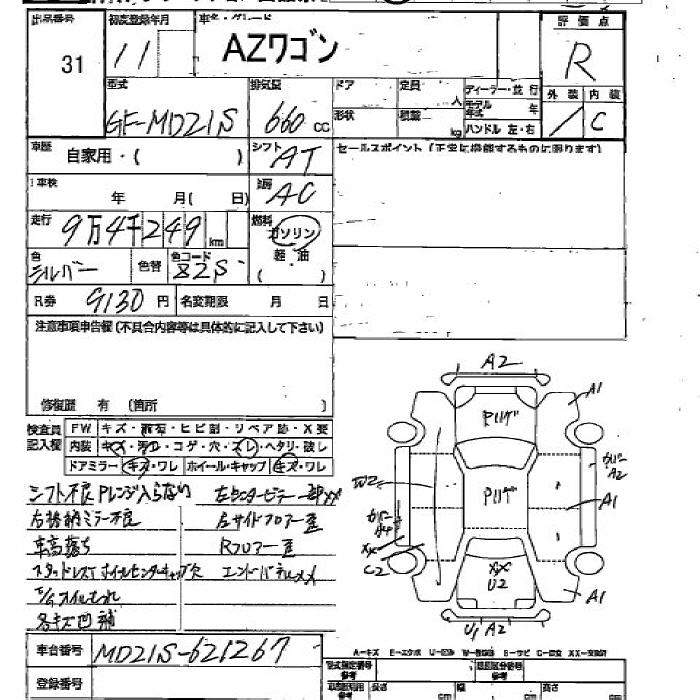 出品番号 初度登録年月 車名・グレード 評価点
31 11 AZワゴン R
型式 排気量 ドア 定員 ディーラー・並行 外装 内装
GF-MD21S 660cc 人 モデル年式 年
形状 積載 kg ハンドル 左・右 C
車歴 自家用・( ) シフト AT セールスポイント (正常に機能するものに限ります)
車検 年 月( 日) AC
走行 9万4千249km 燃料 ガソリン
色 シルバー 色替 色コード 82S 軽・油
( )
R券 9130円 名変期限 月 日
注意事項申告欄(不具合内容等は具体的に記入して下さい)
修復歴 有 (箇所 )
検査員 FW キズ・飛石・ヒビ割・リペア跡・X要
記入欄 内装 キズ・汚れ・コゲ・穴・スレ・ヘタリ・破し
ドアミラー キズ・ワレ ホイール・キャップ キズ・ワレ
シフト不良Pレンジ入らない
右格納ミラー不良 左サイドフロアー歪
車高落ち Rフロアー歪
スタッドレスT ホイルセンターキャップ欠
各キズ凹補
A2
A1
W2
A2
A1
XX
C2
XX
U2
A1
U1 A2
車台番号 MD21S-621267
登録番号
A-キズ
型式指定番号 類別区分番号
参考 参考
長さ cm 幅 cm 高さ cm